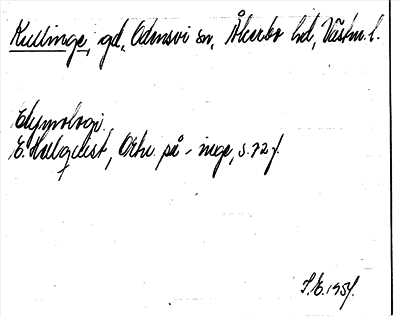 Kullinge, gd, Odensvi sn, Åkerbo hd, Västm. l.
Etymologi.
E. Hellquist, Ortn. på -inge, s. 72 f.
S.E. 1951.